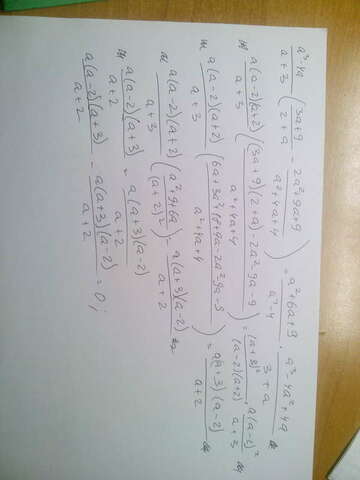 a³-4a / a+3 (3a+9 / 2+a - 2a²+9a+9 / a²+4a+4) = a²+6a+9 / a²-4 · a³-4a²+4a / 3+a
a(a-2)(a+2) / a+3 ((3a+9)(2+a)-2a²-9a-9 / a²+4a+4) = (a+3)² / (a-2)(a+2) · a(a-2)² / a+3
a(a-2)(a+2) / a+3 (6a+3a²+18+4a-2a²9a-9 / a²+4a+4) = a(a+3)(a-2) / a+2
a(a-2)(a+2) / a+3 (a²+9+6a / (a+2)²) - a(a+3)(a-2) / a+2
a(a-2)(a+3) / a+2 = a(a+3)(a-2) / a+2
a(a-2)(a+3) / a+2 - a(a+3)(a-2) / a+2 = 0;